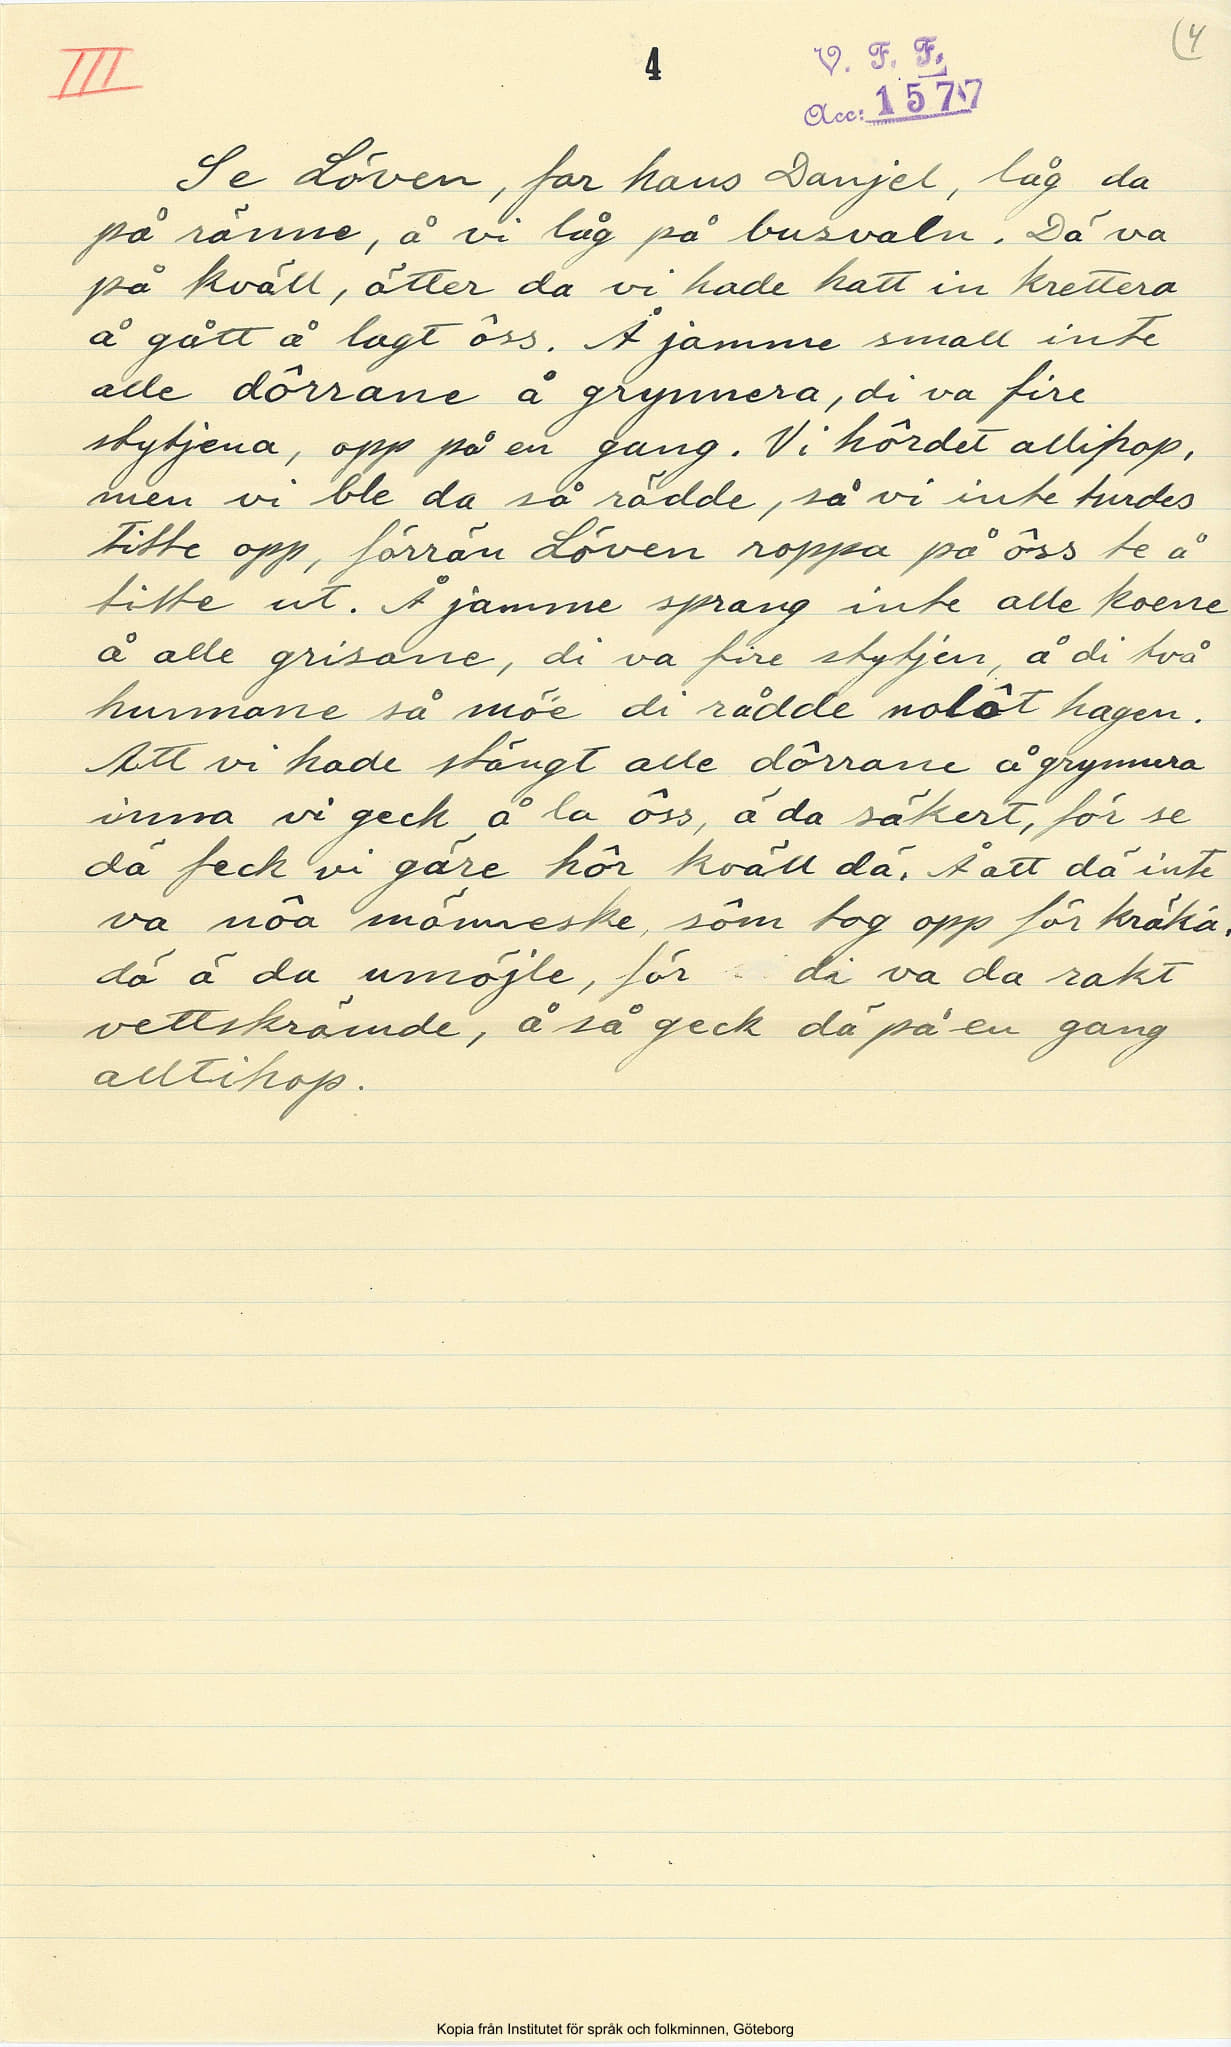 III
4
V. F. F.
Acc: 1577
(4
Se Löven, far hans Danjel, låg da
på ränne, å vi låg på busvaln. Dä va
på kväll, ätter da vi hade hatt in krettera
å gått å lagt ôss. Å jamme small inte
alle dôrrane å grynnera, di va fire
stytjena, opp på en gang. Vi hôrdet allihop,
men vi ble da så rädde, så vi inte turdes
titte opp, förrän Löven roppa på ôss te å
titte ut. Å jamme sprang inte alle koene
å alle grisane, di va fire stytjen, å di två
hunnane så möe di rådde nolôt hagen.
Att vi hade stängt alle dôrrane å grynnera
inna vi geck å la ôss, ä da säkert, för se
dä feck vi gäre hôr kväll dä. Å att dä inte
va nôa männeske, sôm tog opp för kräka,
dä ä da umöjle, för di va da rakt
vettskrämde, å så geck dä på en gang
alltihop.
Kopia från Institutet för språk och folkminnen, Göteborg